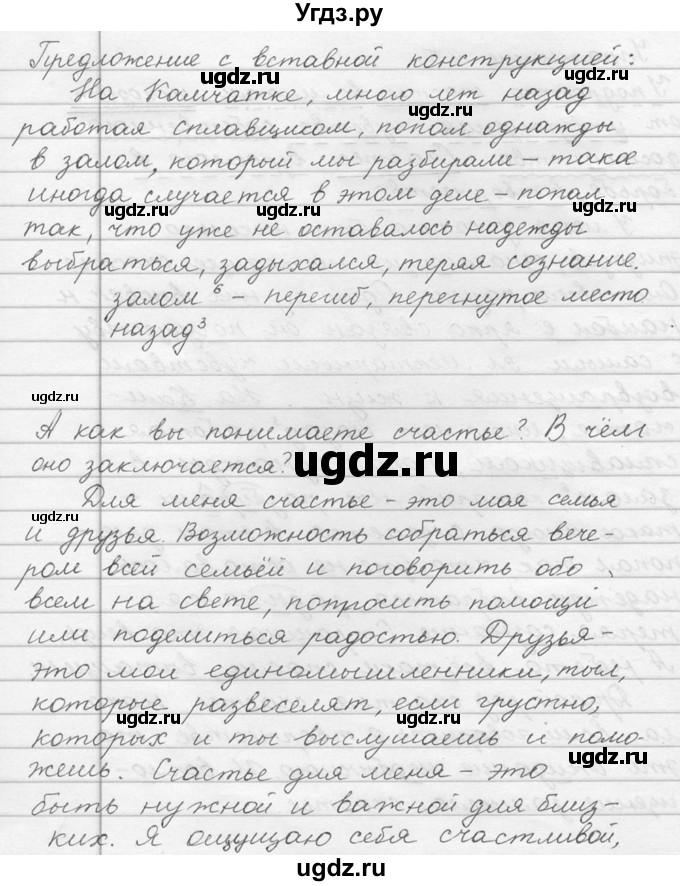 Угдз.ру
Предложение с вставной конструкцией:
На Камчатке, много лет назад
работая сплавщиком, попал однажды
в залом, который мы разбирали – такое
иногда случается в этом деле – попал
так, что уже не оставалось надежды
выбраться, задыхался, теряя сознание.
залом⁶ – перегиб, перегнутое место
назад³
А как вы понимаете счастье? В чём
оно заключается?
Для меня счастье – это моя семья
и друзья. Возможность собраться вече-
ром всей семьёй и поговорить обо
всем на свете, попросить помощи
или поделиться радостью. Друзья –
это мои единомышленники, тыл,
которые развеселят, если грустно,
которых и ты выслушаешь и помо-
жешь. Счастье для меня – это
быть нужной и важной для близ-
ких. Я ощущаю себя счастливой,
ugdz.ru